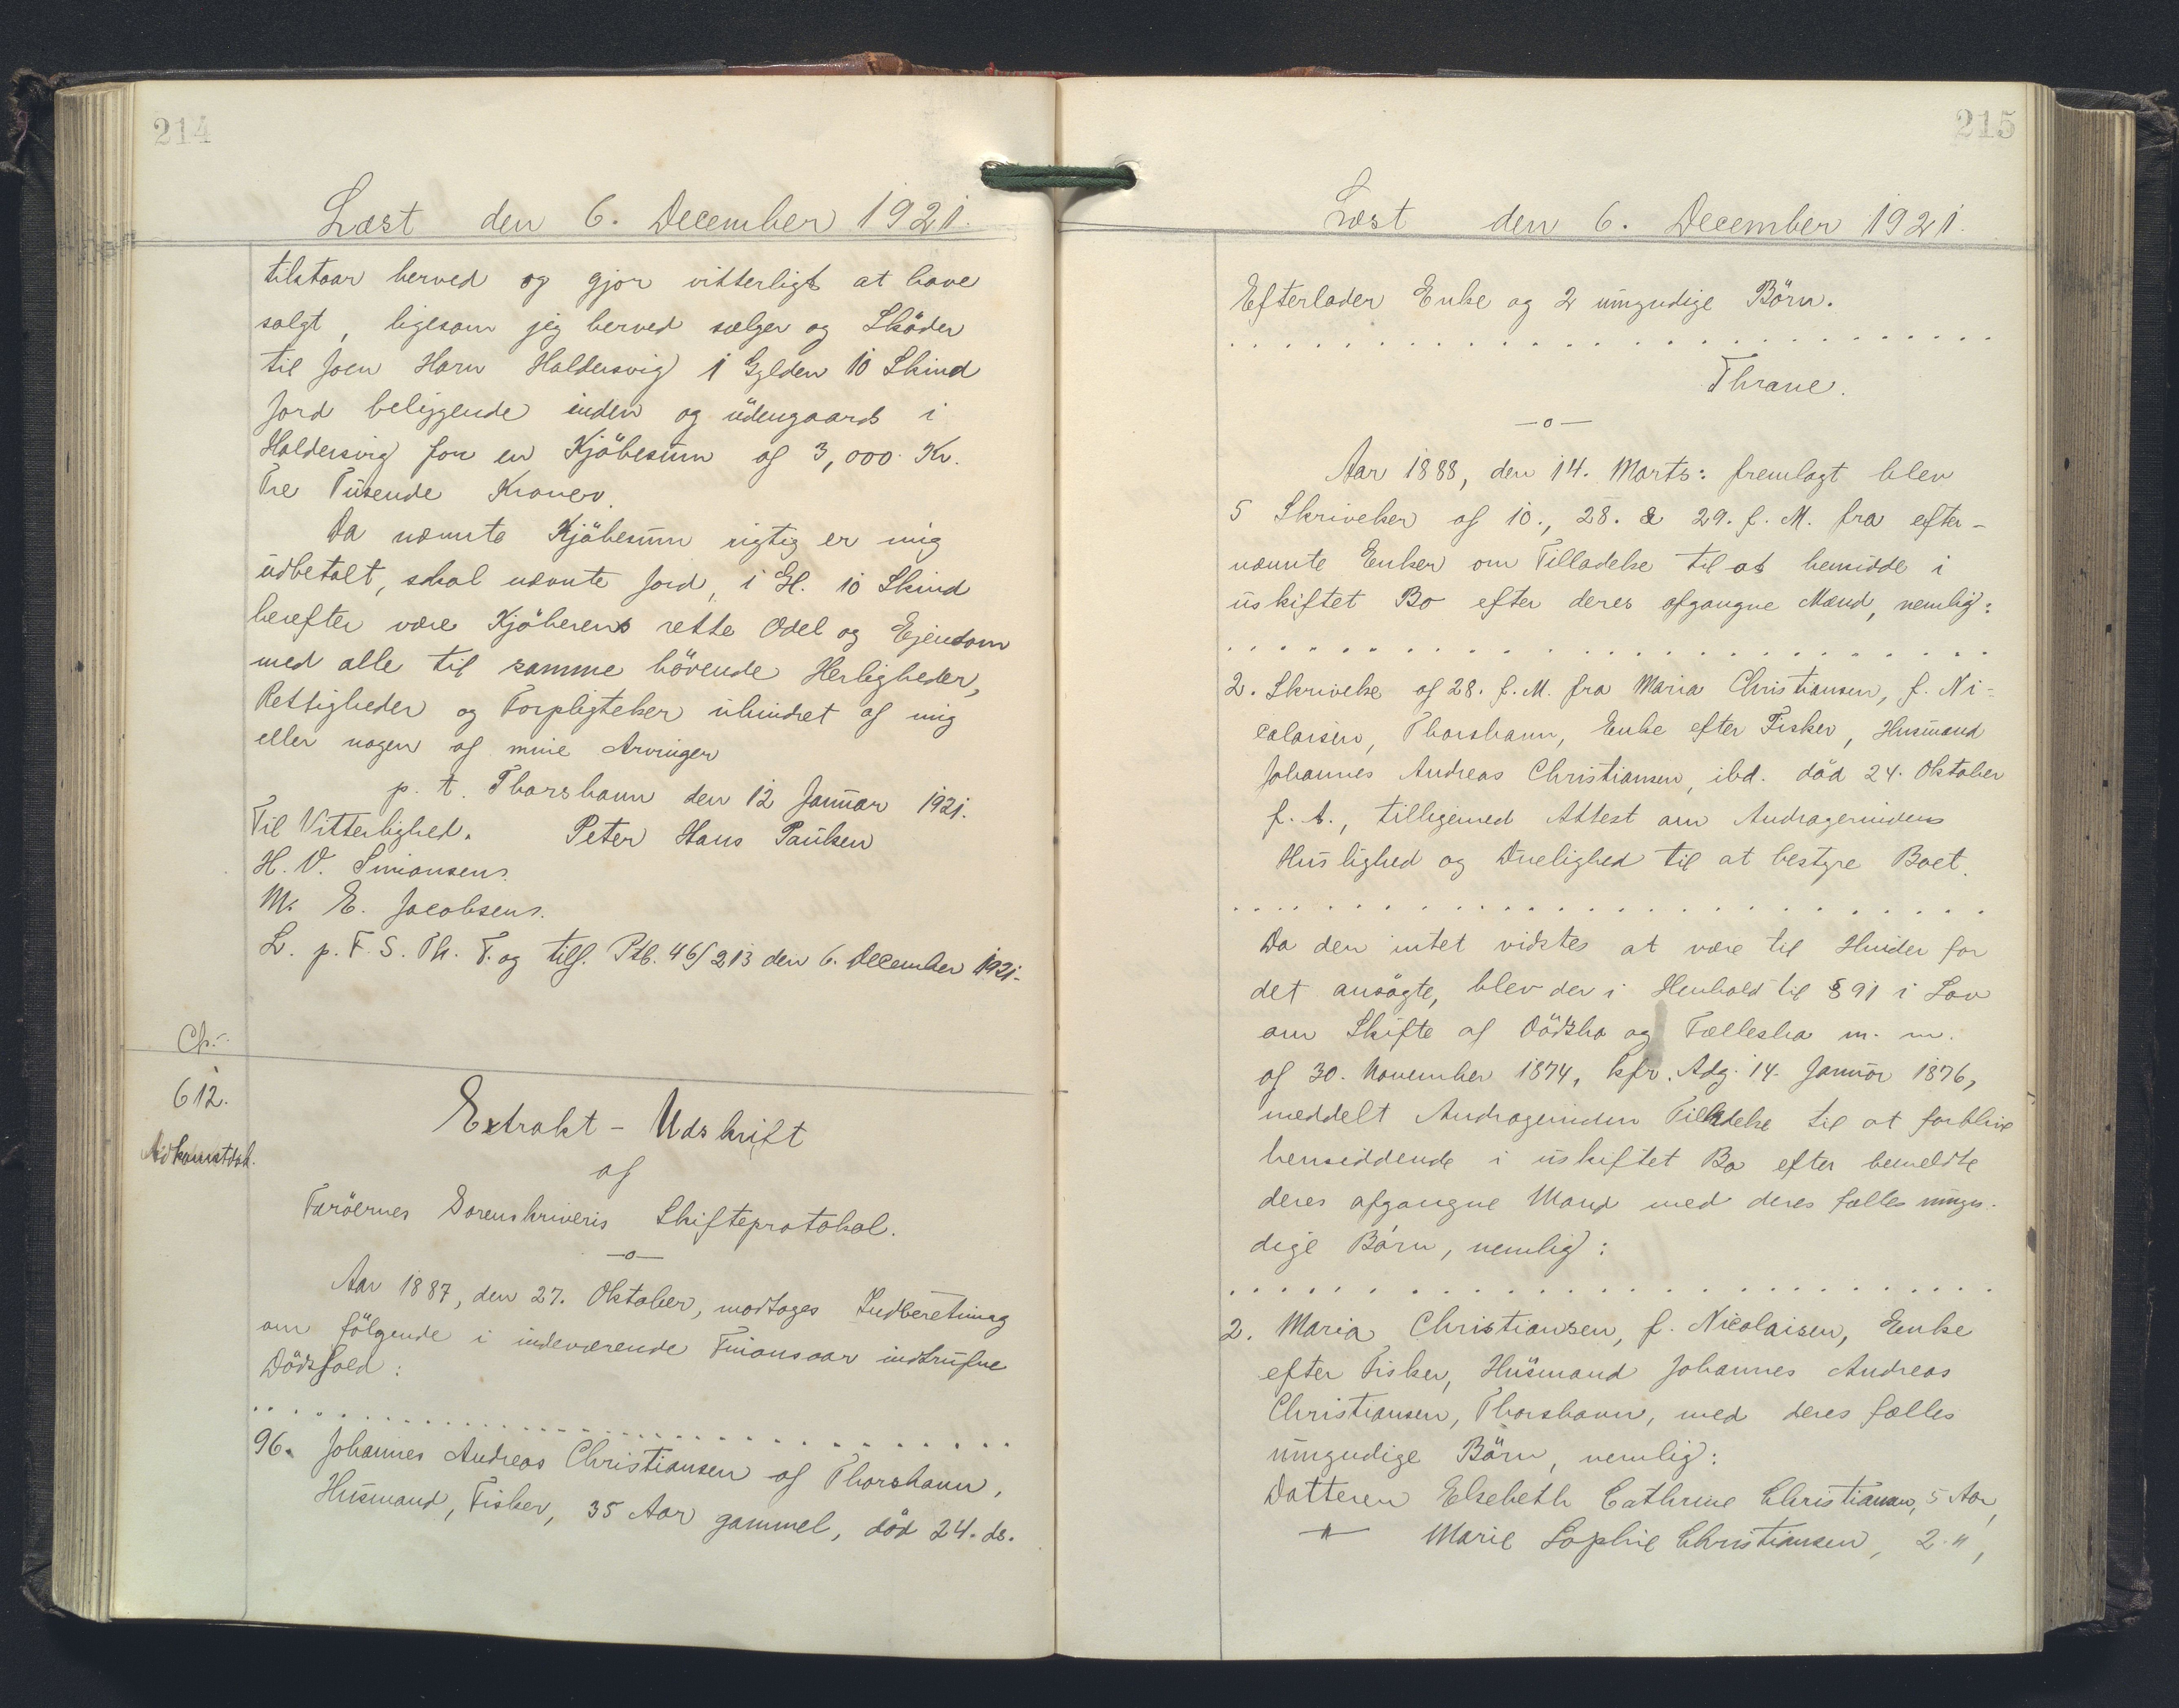 214
Læst den 6. December 1921.
tilstaar herved og gjør vitterligt at have
solgt, ligesom jeg herved sælger og Sköder
til Joen Hørn Haldersvig 1 Gylden 10 Skind
Jord beliggende inden og üdengaards i
Haldersvig for en Kjöbesüm af 3,000 Kr.
Tre Tüsende Kroner.
Da nævnte Kjöbesüm rigtig er mig
üdbetalt, skal nævnte Jord, 1 Gl. 10 Skind
herefter være Kjöberens rette Odel og Ejendom
med alle til samme hörende Herligheder,
Rettigheder og Forpligtelser ühindret af mig
eller nogen af mine Arvinger
p. t. Thorshavn den 12 Janüar 1921.
Til Vitterlighed. Peter Hans Paülsen
H. V. Simonsen.
M. E. Jacobsen.
L. p. F. S. Th. T. og tilf. Ptb. 46/213 den 6. December 1921.
Ch.
612.
Adkomstdok.
Extrakt-Udskrift
af
Færöernes Sorenskriveris Skifteprotokol.
—o—
Aar 1887, den 27. Oktober, modtoges Indberetning
om fölgende i indeværende Finansaar indtrüfne
Dödsfald:
. . . . . . . . . . . . . . . . . . . . . . . .
96. Johannes Andreas Christiansen af Thorshavn,
Hüsmand, Fisker, 35 Aar gammel, död 24. ds.
215
Læst den 6. December 1921.
Efterlader Enke og 2 ümyndige Börn.
. . . . . . . . . . . . . . . . . . . . . . . .
Thrane.
—o—
Aar 1888, den 14. Marts: fremlagt blev
5 Skrivelser af 10., 28. & 29. f. M. fra efter-
nævnte Enker om Tilladelse til at hensidde i
üskiftet Bo efter deres afgangne Mænd, nemlig:
. . . . . . . . . . . . . . . . . . . . . . . .
2. Skrivelse af 28. f. M. fra Maria Christiansen, f. Ni-
colaisen, Thorshavn, Enke efter Fisker, Hüsmand
Johannes Andreas Christiansen, ibd. död 24. Oktober
f. A., tilligemed Attest om Andragerindens
Hüslighed og Düelighed til at bestyre Boet.
. . . . . . . . . . . . . . . . . . . . . . . .
Da der intet vidstes at være til Hinder for
det ansögte, blev der i Henhold til § 91 i Lov
om Skifte af Dödsbo og Fællesbo m. m.
af 30. November 1874, kfr. Adg. 14. Janüar 1876,
meddelt Andragerinden Tilladelse til at forblive
hensiddende i üskiftet Bo efter bemeldte
deres afgangne Mand med deres fælles ümyn-
dige Börn, nemlig:
. . . . . . . . . . . . . . . . . . . . . . . .
2. Maria Christiansen, f. Nicolaisen, Enke
efter Fisker, Hüsmand Johannes Andreas
Christiansen, Thorshavn, med deres fælles
ümyndige Börn, nemlig:
Datteren Elsebeth Cathrine Christiansen, 5 Aar,
—"— Marie Sophie Christiansen, 2 ",